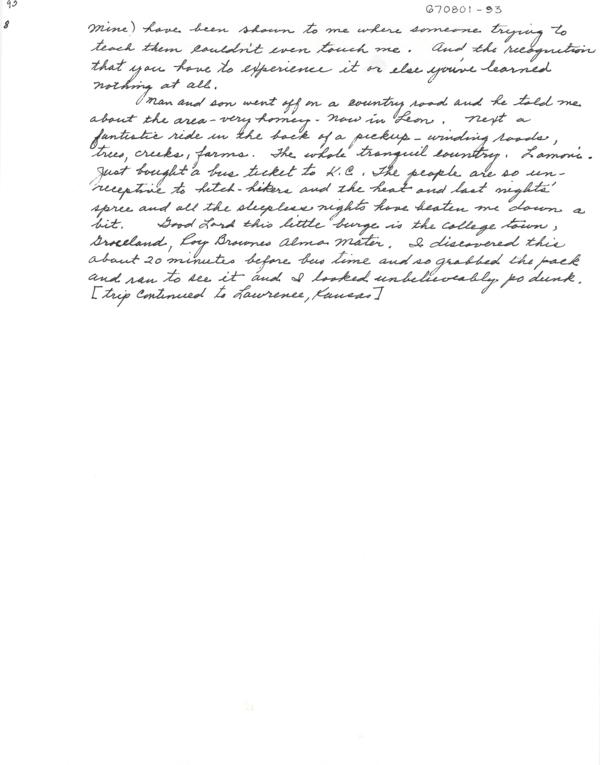 93
8
G70801-93
mine) have been shown to me where someone trying to
teach them couldn't even touch me. And the recognition
that you have to experience it or else you've learned
nothing at all.
Man and son went off on a country road and he told me
about the area - very homey - Now in Leon. Next a
fantastic ride in the back of a pickup - winding roads,
trees, creeks, farms. The whole tranquil country. Lamoni.
Just bought a bus ticket to K.C. The people are so un-
receptive to hitch-hikers and the heat and last nights'
spree and all the sleepless nights have beaten me down a
bit. Good Lord this little burge is the college town,
Graceland, Roy Brownes Alma Mater. I discovered this
about 20 minutes before bus time and so grabbed the pack
and ran to see it and I looked unbelieveably po dunk.
[trip continued to Lawrence, Kansas]